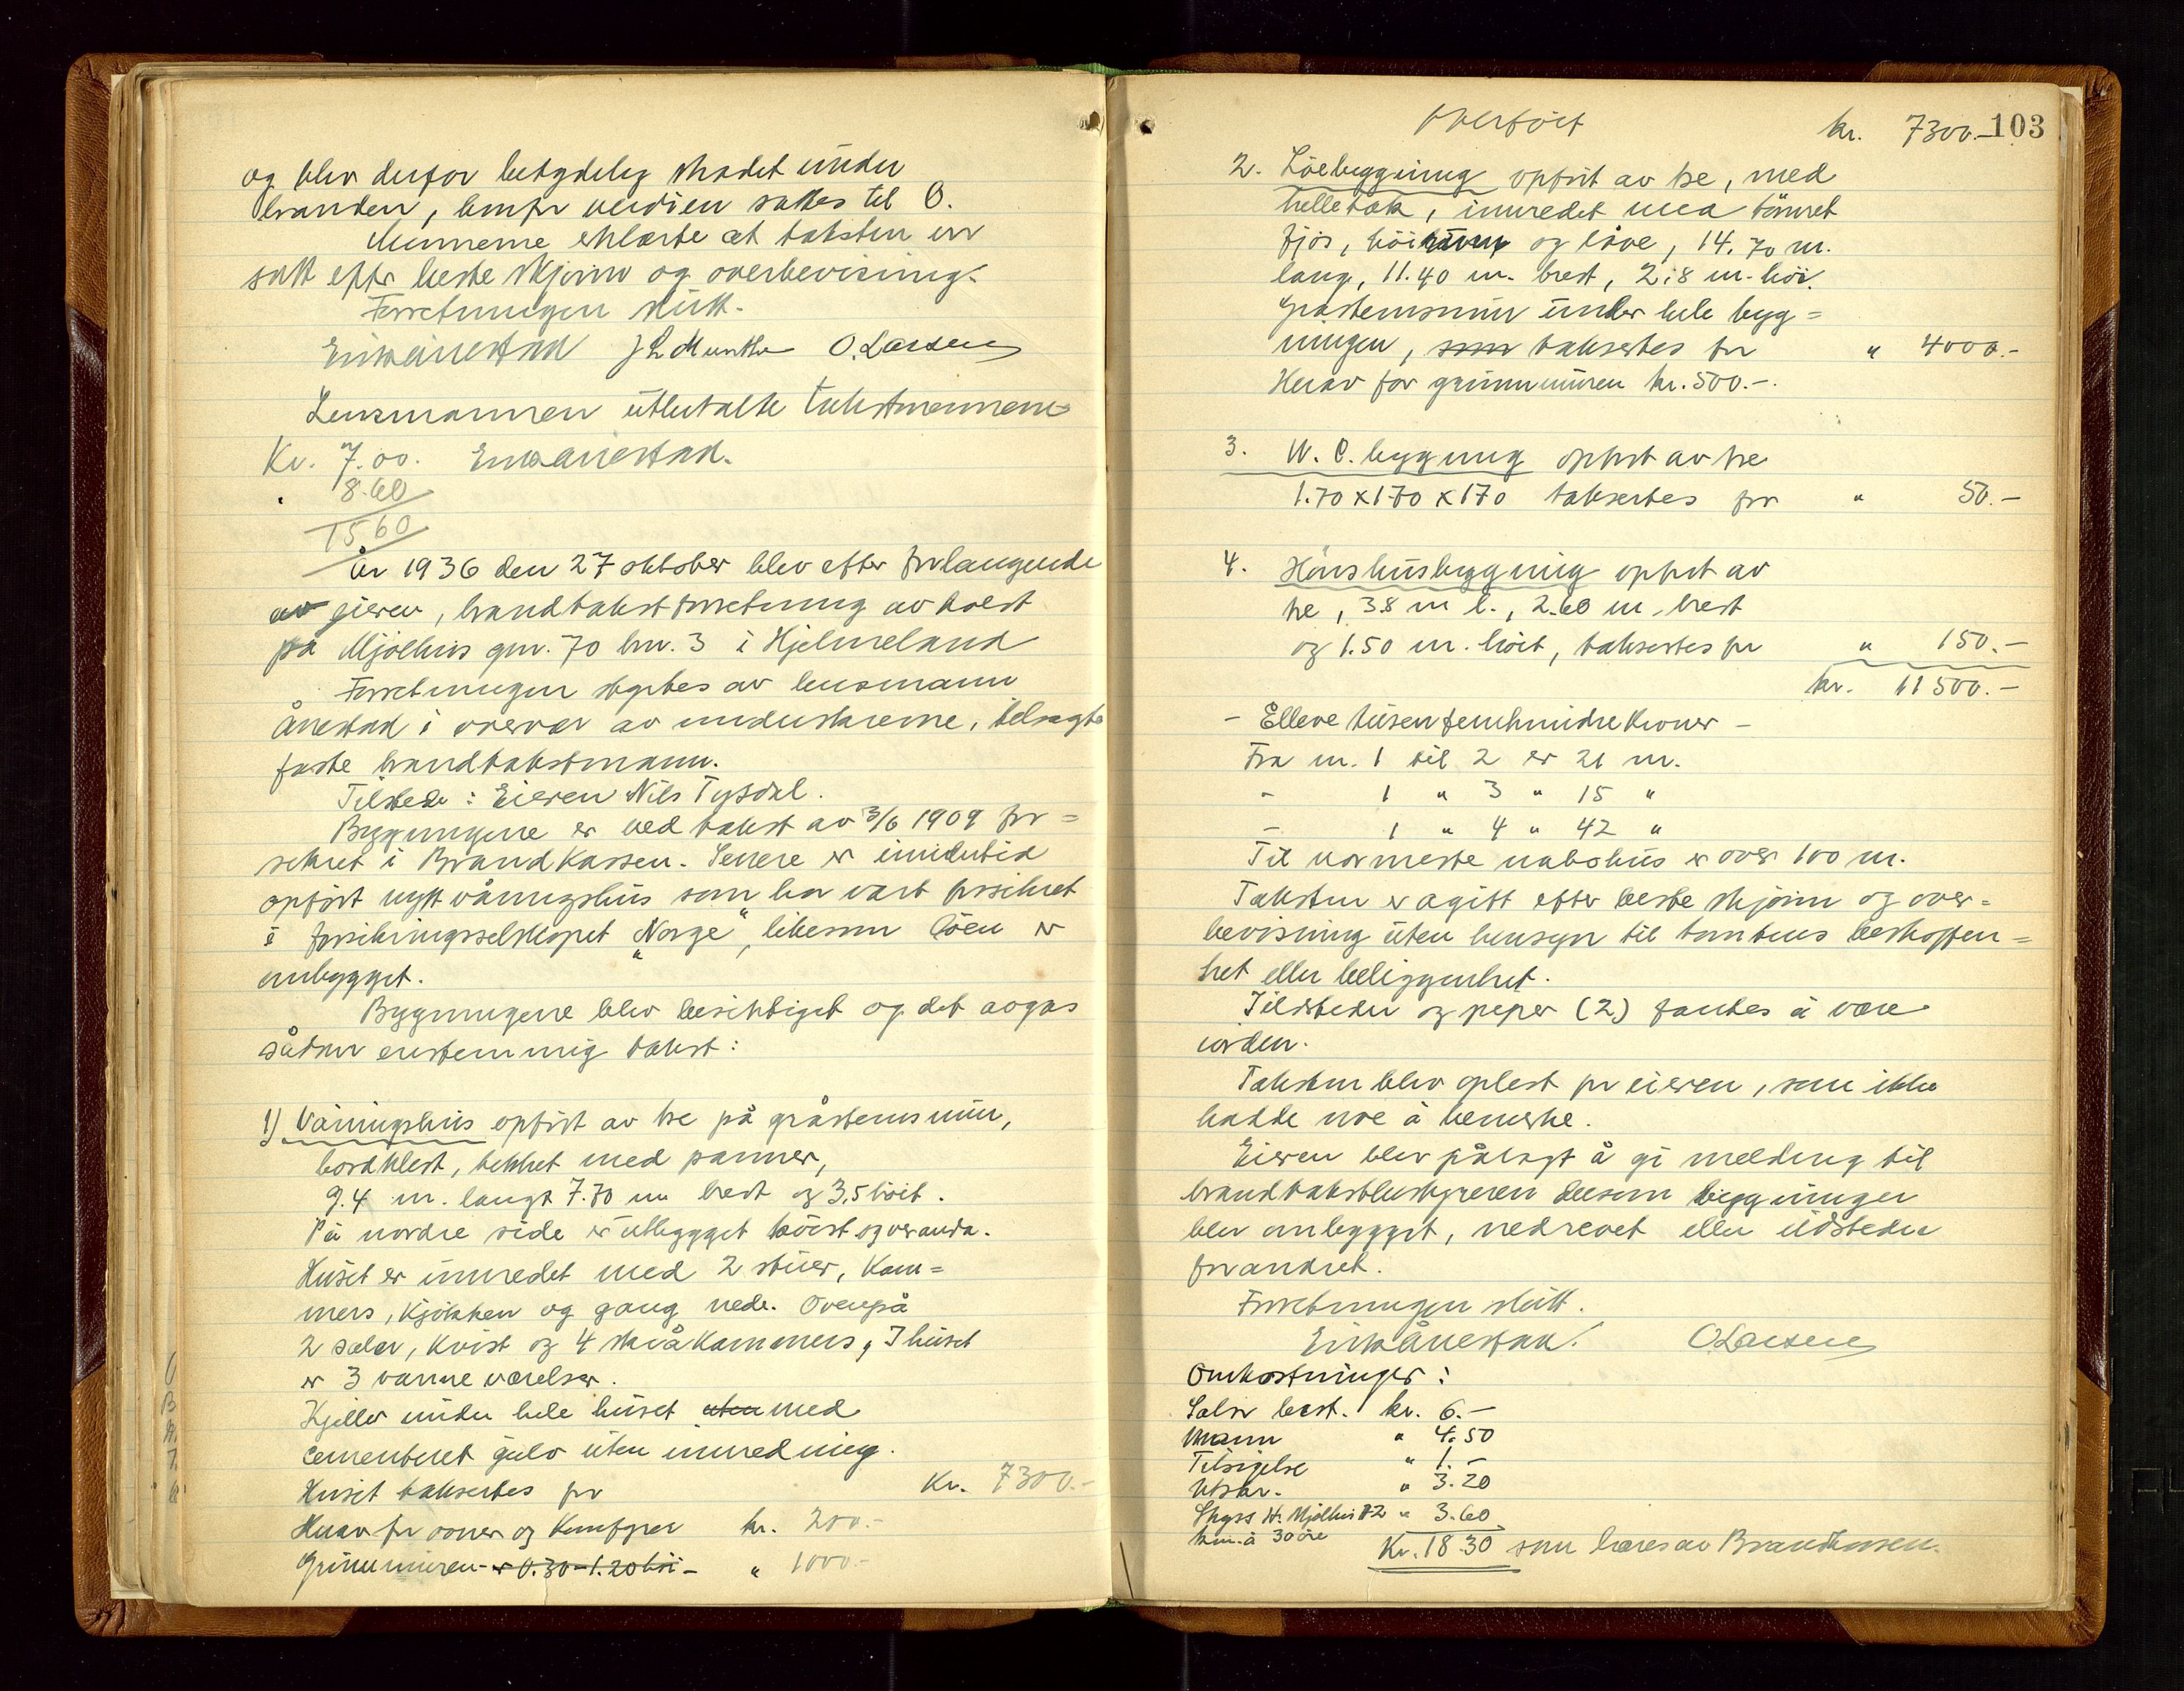 og blev derfor betydelig skadet under
branden, hvorfor verdien sattes til 0.
Mennerne erklærte at taksten er
satt efter beste skjønn og overbevisning.
Forretningen slutt.
Eirik Ånestad J L Munthe O. Larsen
Lensmannen utbetalte takstmennene
Kr. 7.00. Eirik Ånestad.
" 8.60
15 60
År 1936 den 27 oktober blev efter forlangende
av eieren, brandtakstforretning avholdt
på Mjølhus gnr. 70 bnr. 3 i Hjelmeland
Forretningen styrtes av lensmann
Ånestad i overvær av underskrevne, tilsagte
faste brandtakstmann.
Tilstede: Eieren Nils Tysdal.
Bygningene er ved takst av 3/6 1909 for=
sikret i Brandkassen. Senere er imidlertid
opført nytt våningshus som har vært forsikret
i forsikringsselskapet "Norge", likesom løen er
ombygget.
Bygningene blev besiktiget og det avgas
sådan enstemmig takst:
1) Våningshus opført av tre på gråstensmur,
bordklædt, tekket med panner,
9.4 m. langt 7.70 m bredt og 3,5 høit.
På nordre side er utbygget kvist og veranda.
Huset er innredet med 2 stuer, Kam=
mers, Kjøkken og gang nede. Ovenpå
2 saler, Kvist og 4 skråkammers, I huset
er 3 varme værelser.
Kjeller under hele huset uten med
cementeret gulv uten innredning.
Huset takseres for Kr. 7300.-
Herav for ovner og Komfyrer kr. 200.-
Grunnmuren - er 0.30 - 1.20 høi - " 1000.-
Overført kr. 7300.- 103
2. Løebygging opført av tre, med
helletak, innredet med tømret
fjøs, høirum og låve, 14.70 m.
lang, 11.40 m. bredt, 2.8 m. høi.
Gråstensmur under hele byg=
ningen, som taksertes for " 4000.-
Herav for grunnmuren kr. 500.-.
3. W. C. bygning opført av tre
1.70 x 1.70 x 170 taksertes for " 50.-
4. Hønshusbygning opført av
tre, 3.8 m l., 2.60 m. bredt
og 1.50 m. høit, taksertes for " 150.-
kr. 11 500.-
- Elleve tusen femhundre Kroner -
Fra nr. 1 til 2 er 21 m.
- 1 " 3 " 15 "
- 1 " 4 " 42 "
Til nærmeste nabohus er over 100 m.
Taksten er avgitt efter beste skjønn og over=
bevisning uten hensyn til tomtens beskaffen=
het eller beliggenhet.
Ildsteder og peper (2) fantes å være
iorden.
Taksten blev oplest for eieren, som ikke
hadde noe å bemerke.
Eieren blev pålagt å gi melding til
brandtakstbestyreren dersom bygninger
blev ombygget, nedrevet eller ildsteder
forandret.
Forretningen slutt.
Eirik Ånestad. O Larsen
Omkostninger:
Salær best. kr. 6.-
Mann " 4.50
Tilsigelse " 1.-
Utskr. " 3.20
Skyss H. Mjølhus 12 " 3.60
km. à 30 øre
Kr. 18.30 som bæres av Brandkassen.